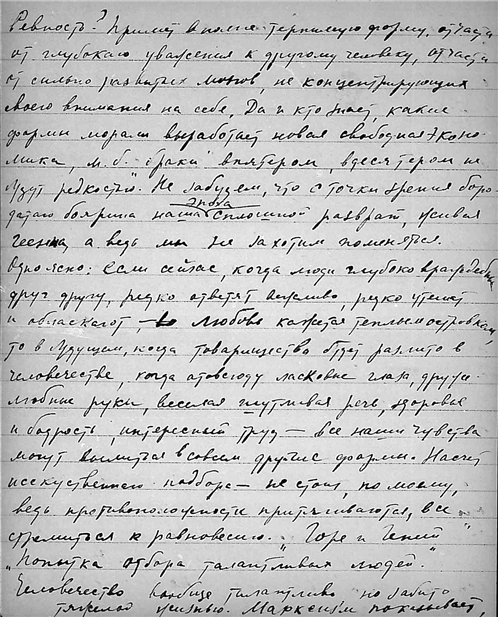 Ревность? Примет вполне терпимую форму, отчасти
от глубокаго уважения к другому человеку, отчасти
от сильно развитых мозгов, не концентрирующих
своего внимания на себе. Да и кто знает, какие
формы морали выработает новая свободная эконо-
мика, м. б. "браки" впятером, вдесятером не
будут редкостью. Не забудем, что с точки зрения боро-
датаго боярина наша эпоха сплошной разврат, живая
геенна, а ведь мы не захотим поменяться.
Одно ясно: если сейчас, когда люди глубоко враждебны
друг другу, редко ответят вежливо, редко утешат
и обласкают, – любовь кажется теплым островком,
то в будущем, когда товарищество будет разлито в
человечестве, когда отовсюду ласковые глаза, друже-
любные руки, веселая шутливая речь, здоровье
и бодрость, интересный труд – все наши чувства
могут вылиться в совсем другие формы. Насчет
исскуственнаго подбора – не стоит, по моему,
ведь противоположности притягиваются, все
стремиться к равновесию. "Горе и Гений"
"Попытка отбора талантливых людей."
Человечество вообще талантливо но забито
тяжелой жизнью. Марксизм показывает,